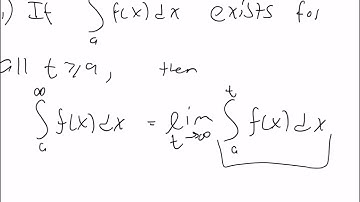 1) If ∫ₐ f(x) dx exists for
all t ≥ a, then
∫ₐ^∞ f(x) dx = lim_{t→∞} ∫ₐ^t f(x) dx